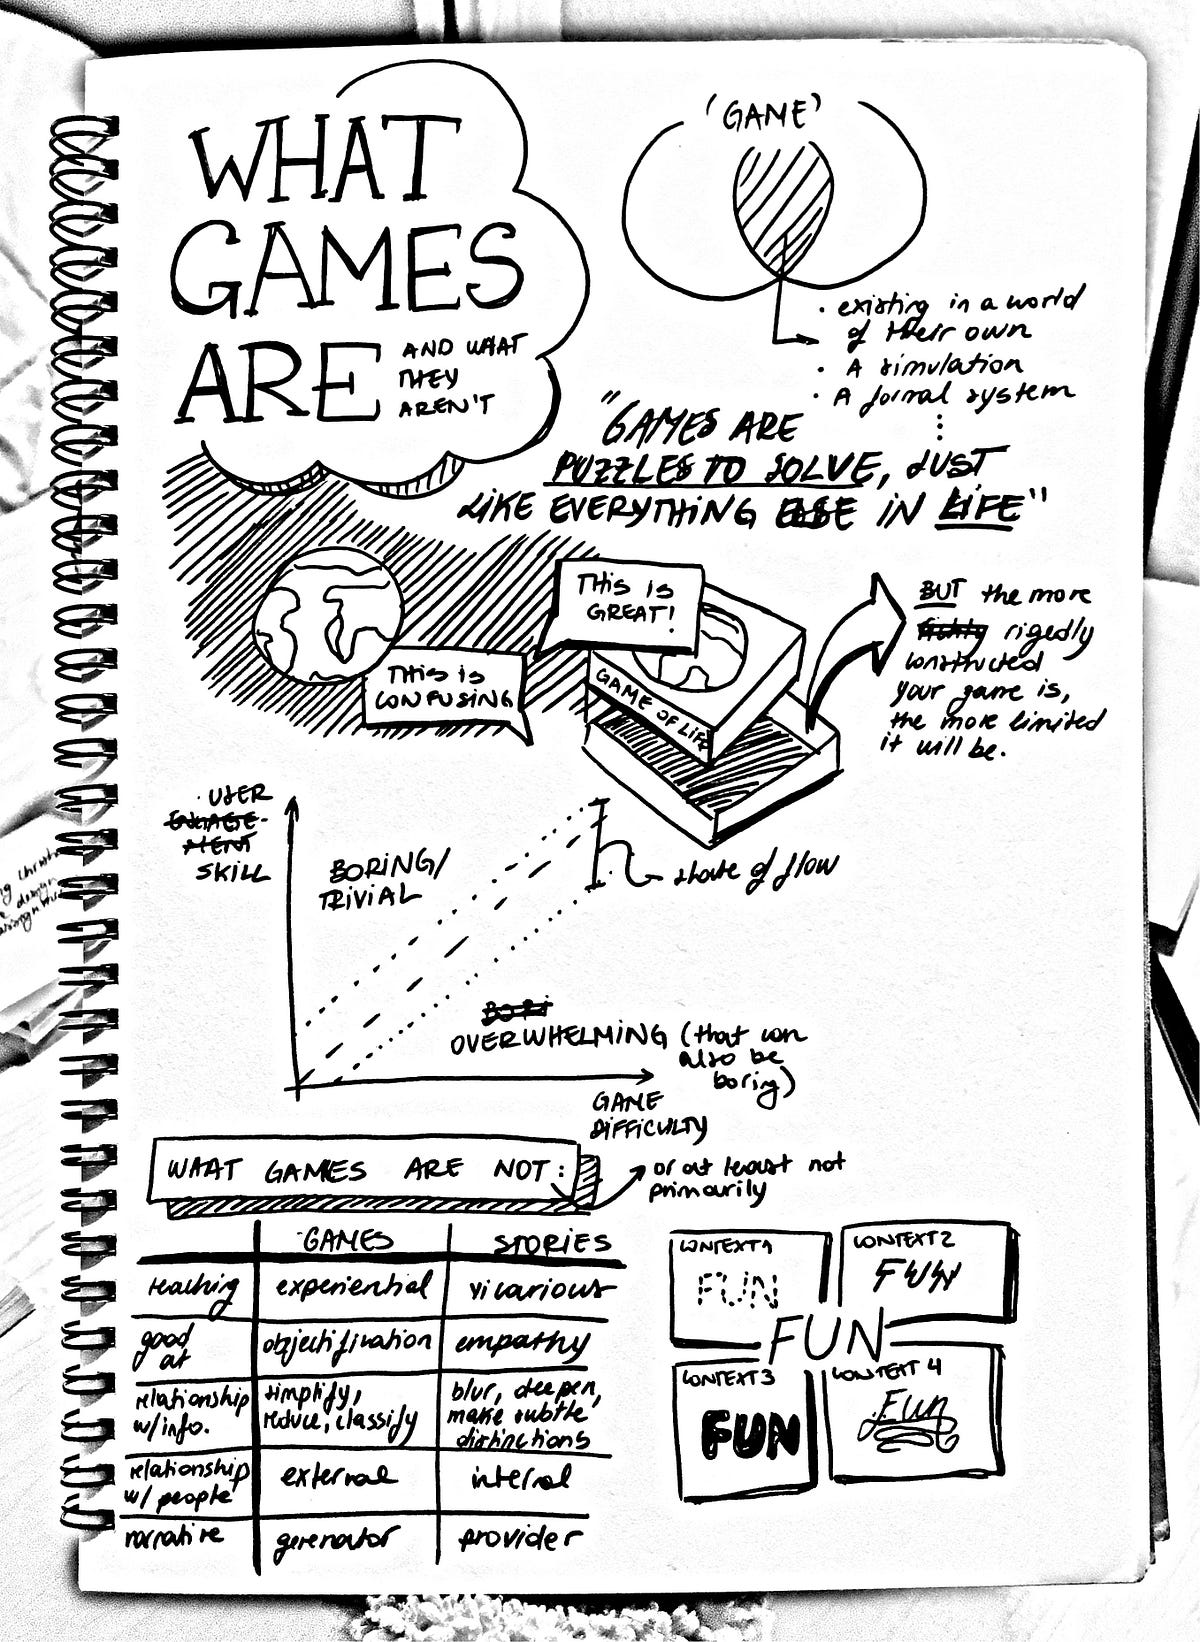 WHAT
GAMES
ARE
AND WHAT
THEY
AREN'T
'GAME'
• existing in a world
of their own
• A simulation
• A formal system
"GAMES ARE
PUZZLES TO SOLVE, JUST
LIKE EVERYTHING ELSE IN LIFE"
THIS IS
CONFUSING
THIS IS
GREAT!
GAME OF LIFE
BUT the more
rigedly
constructed
your game is,
the more limited
it will be.
USER
ENGAGE-
MENT
SKILL
BORING/
TRIVIAL
state of flow
BORI
OVERWHELMING (that can
also be
boring)
GAME
DIFFICULTY
WHAT GAMES ARE NOT:
or at least not
primarily
GAMES STORIES
teaching experiential vicarious
good
at objectification empathy
relationship
w/info. simplify,
reduce, classify blur, deepen,
make subtle
distinctions
relationship
w/ people external internal
narrative generator provider
CONTEXT 1
FUN
CONTEXT 2
FUN
FUN
CONTEXT 3
FUN
CONTEXT 4
Fun